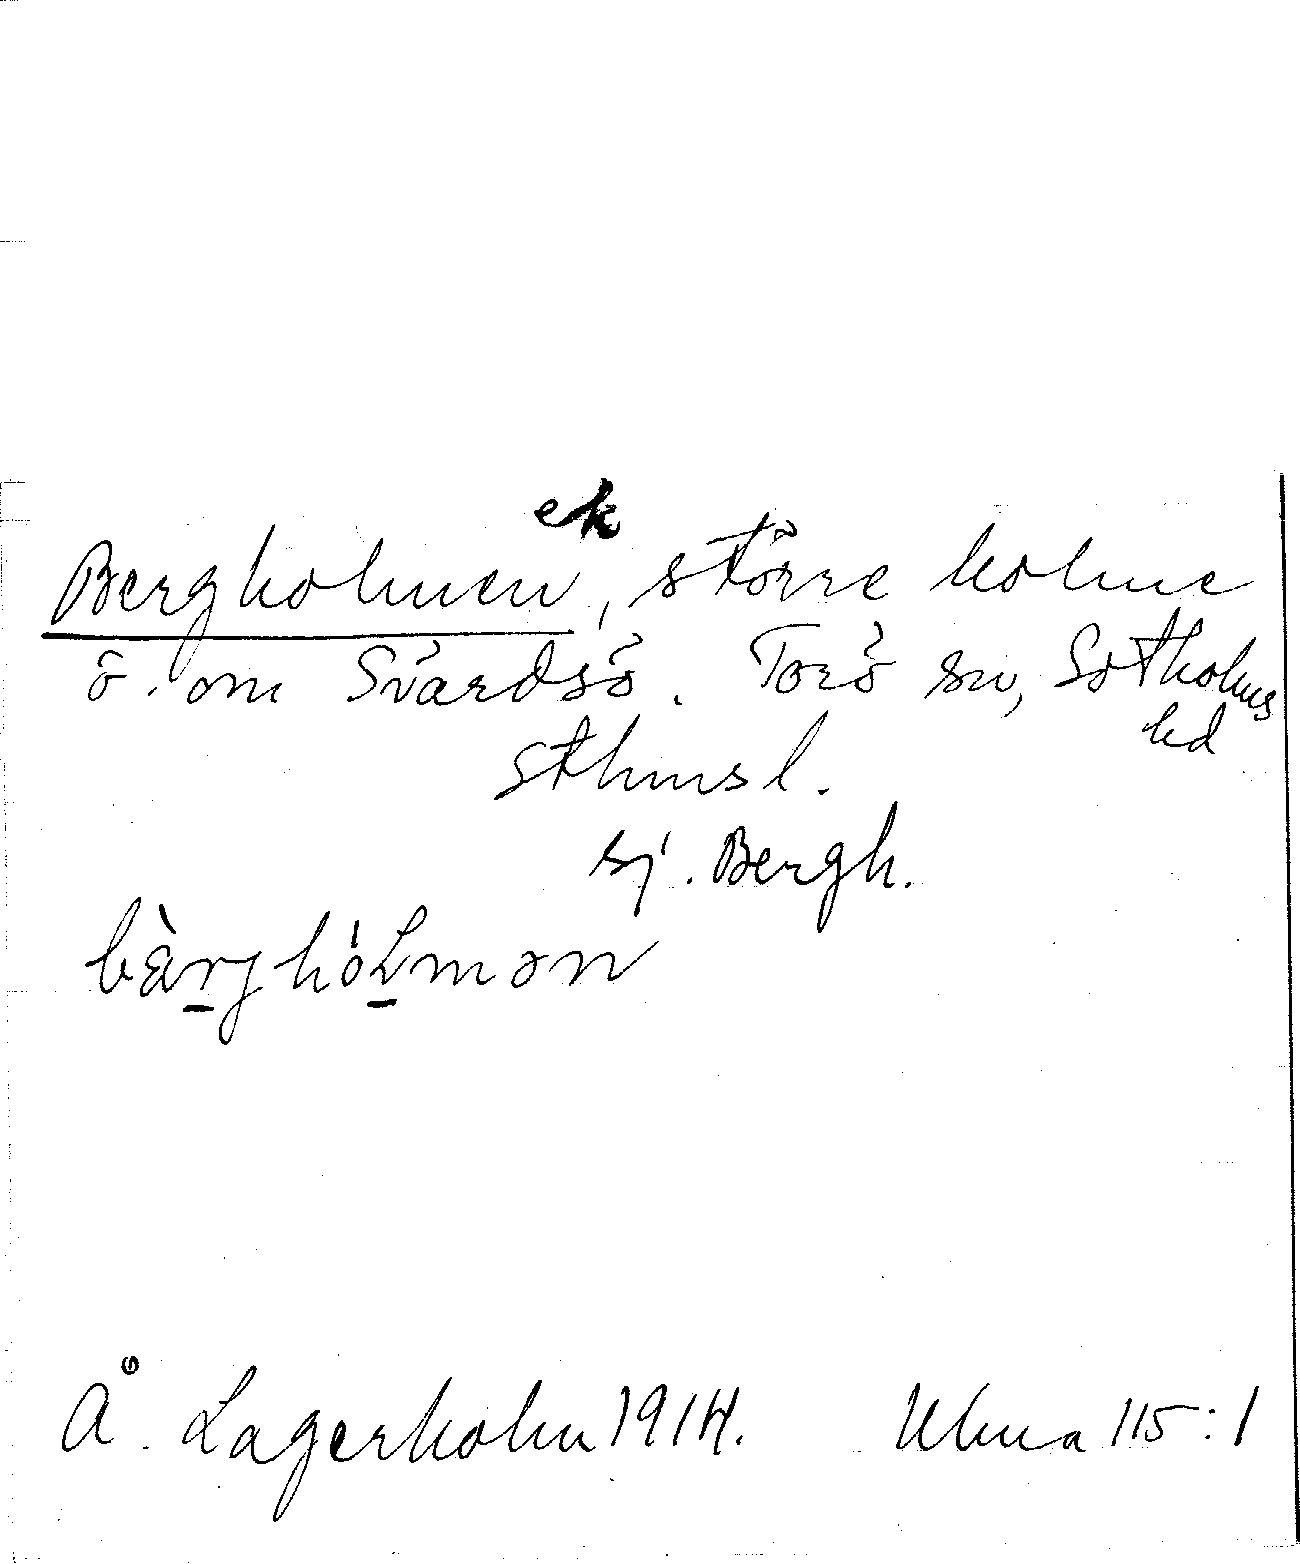 ek
Bergholmen, större holme
ö. om Svärdsö. Torö sn, Sotholms
hd
Sthms l.
sj. Bergh.
bä̀rghóLmən
Å. Lagerholm 1914. Ulma 115:1